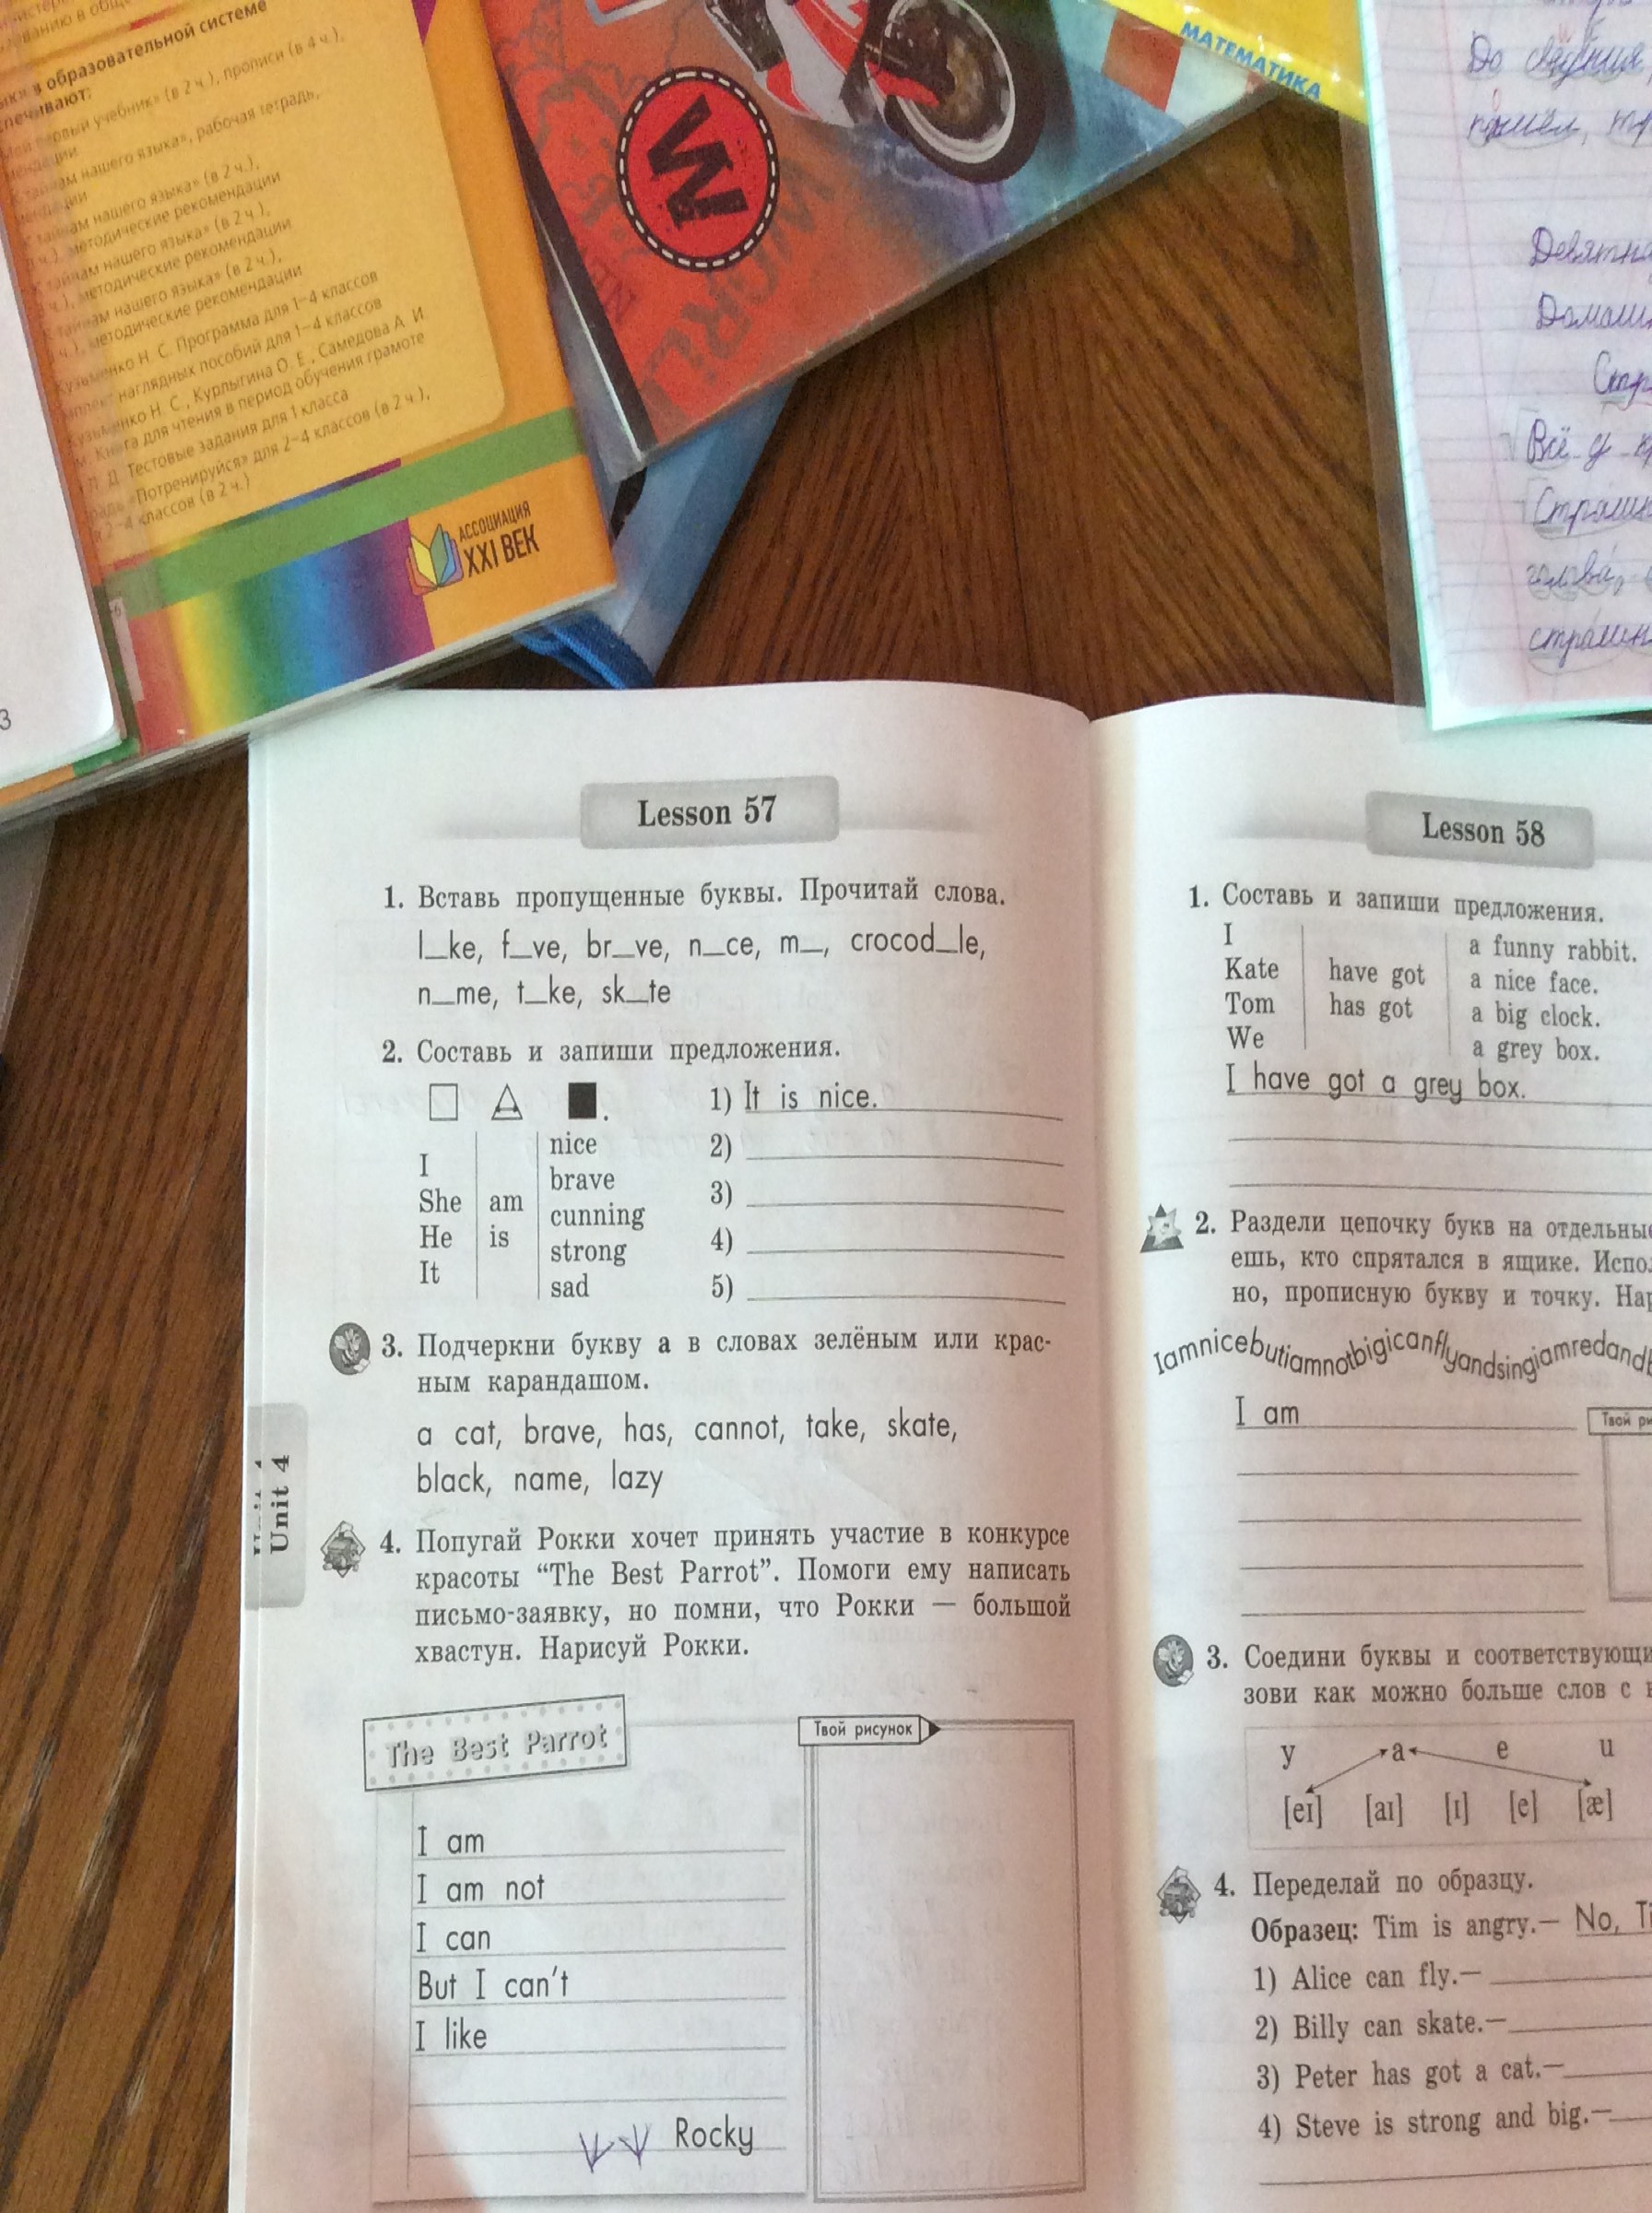 в образовательной системе
учебник» (в 2 ч.), прописи (в 4 ч.),
нашего языка», рабочая тетрадь,
нашего языка» (в 2 ч.),
методические рекомендации
нашего языка» (в 2 ч.),
методические рекомендации
нашего языка» (в 2 ч.),
методические рекомендации
Кузьменко Н. С. Программа для 1–4 классов
наглядных пособий для 1–4 классов
Н. С., Курлыгина О. Е., Самедова А. И.
для чтения в период обучения грамоте
Тестовые задания для 1 класса
«Потренируйся» для 2–4 классов (в 2 ч.),
2–4 классов (в 2 ч.)
АССОЦИАЦИЯ
XXI ВЕК
3
МАТЕМАТИКА
До
Всё у
Lesson 57
1. Вставь пропущенные буквы. Прочитай слова.
l_ke, f_ve, br_ve, n_ce, m_, crocod_le,
n_me, t_ke, sk_te
2. Составь и запиши предложения.
1) It is nice.
2)
3)
4)
5)
I
She
He
It
am
is
nice
brave
cunning
strong
sad
3. Подчеркни букву а в словах зелёным или крас-
ным карандашом.
a cat, brave, has, cannot, take, skate,
black, name, lazy
Unit 4
4. Попугай Рокки хочет принять участие в конкурсе
красоты “The Best Parrot”. Помоги ему написать
письмо-заявку, но помни, что Рокки — большой
хвастун. Нарисуй Рокки.
The Best Parrot
Твой рисунок
I am
I am not
I can
But I can't
I like
Rocky
Lesson 58
1. Составь и запиши предложения.
I
Kate
Tom
We
have got
has got
a funny rabbit.
a nice face.
a big clock.
a grey box.
I have got a grey box.
2. Раздели цепочку букв на отдельные
ешь, кто спрятался в ящике.
но, прописную букву и точку.
Iamnicebutiamnotbigicanflyandsingiamredand
I am
Твой
3. Соедини буквы и
зови как можно больше слов с
y a e u
[eɪ] [aɪ] [ɪ] [e] [æ]
4. Переделай по образцу.
Образец: Tim is angry.— No,
1) Alice can fly.—
2) Billy can skate.—
3) Peter has got a cat.—
4) Steve is strong and big.—